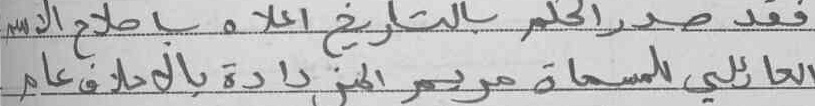 فقد صدر الحكم بالتاريخ اعلاه باصلاح الاسم
العائلي للمسماة مريم الخز دادة بالاحلاف عام